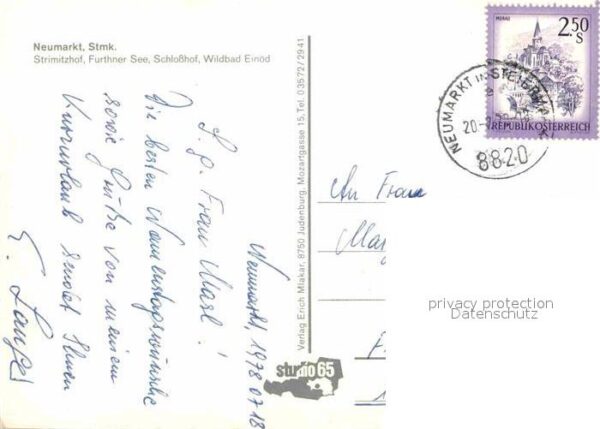 Neumarkt, Stmk.
Strimitzhof, Furthner See, Schloßhof, Wildbad Einöd
Neumarkt, 1978 07 18
S. g. Frau Marl!
Die besten Namenstagswünsche
sowie Grüße von meinem
Kurzurlaub sendet Ihnen
E. Langer
Verlag Erich Mlakar, 8750 Judenburg, Mozartgasse 15, Tel. 03572/2941
studio 65
MURAU
2.50
S
REPUBLIK ÖSTERREICH
NEUMARKT in STEIERMARK
8820
An Frau
privacy protection
Datenschutz